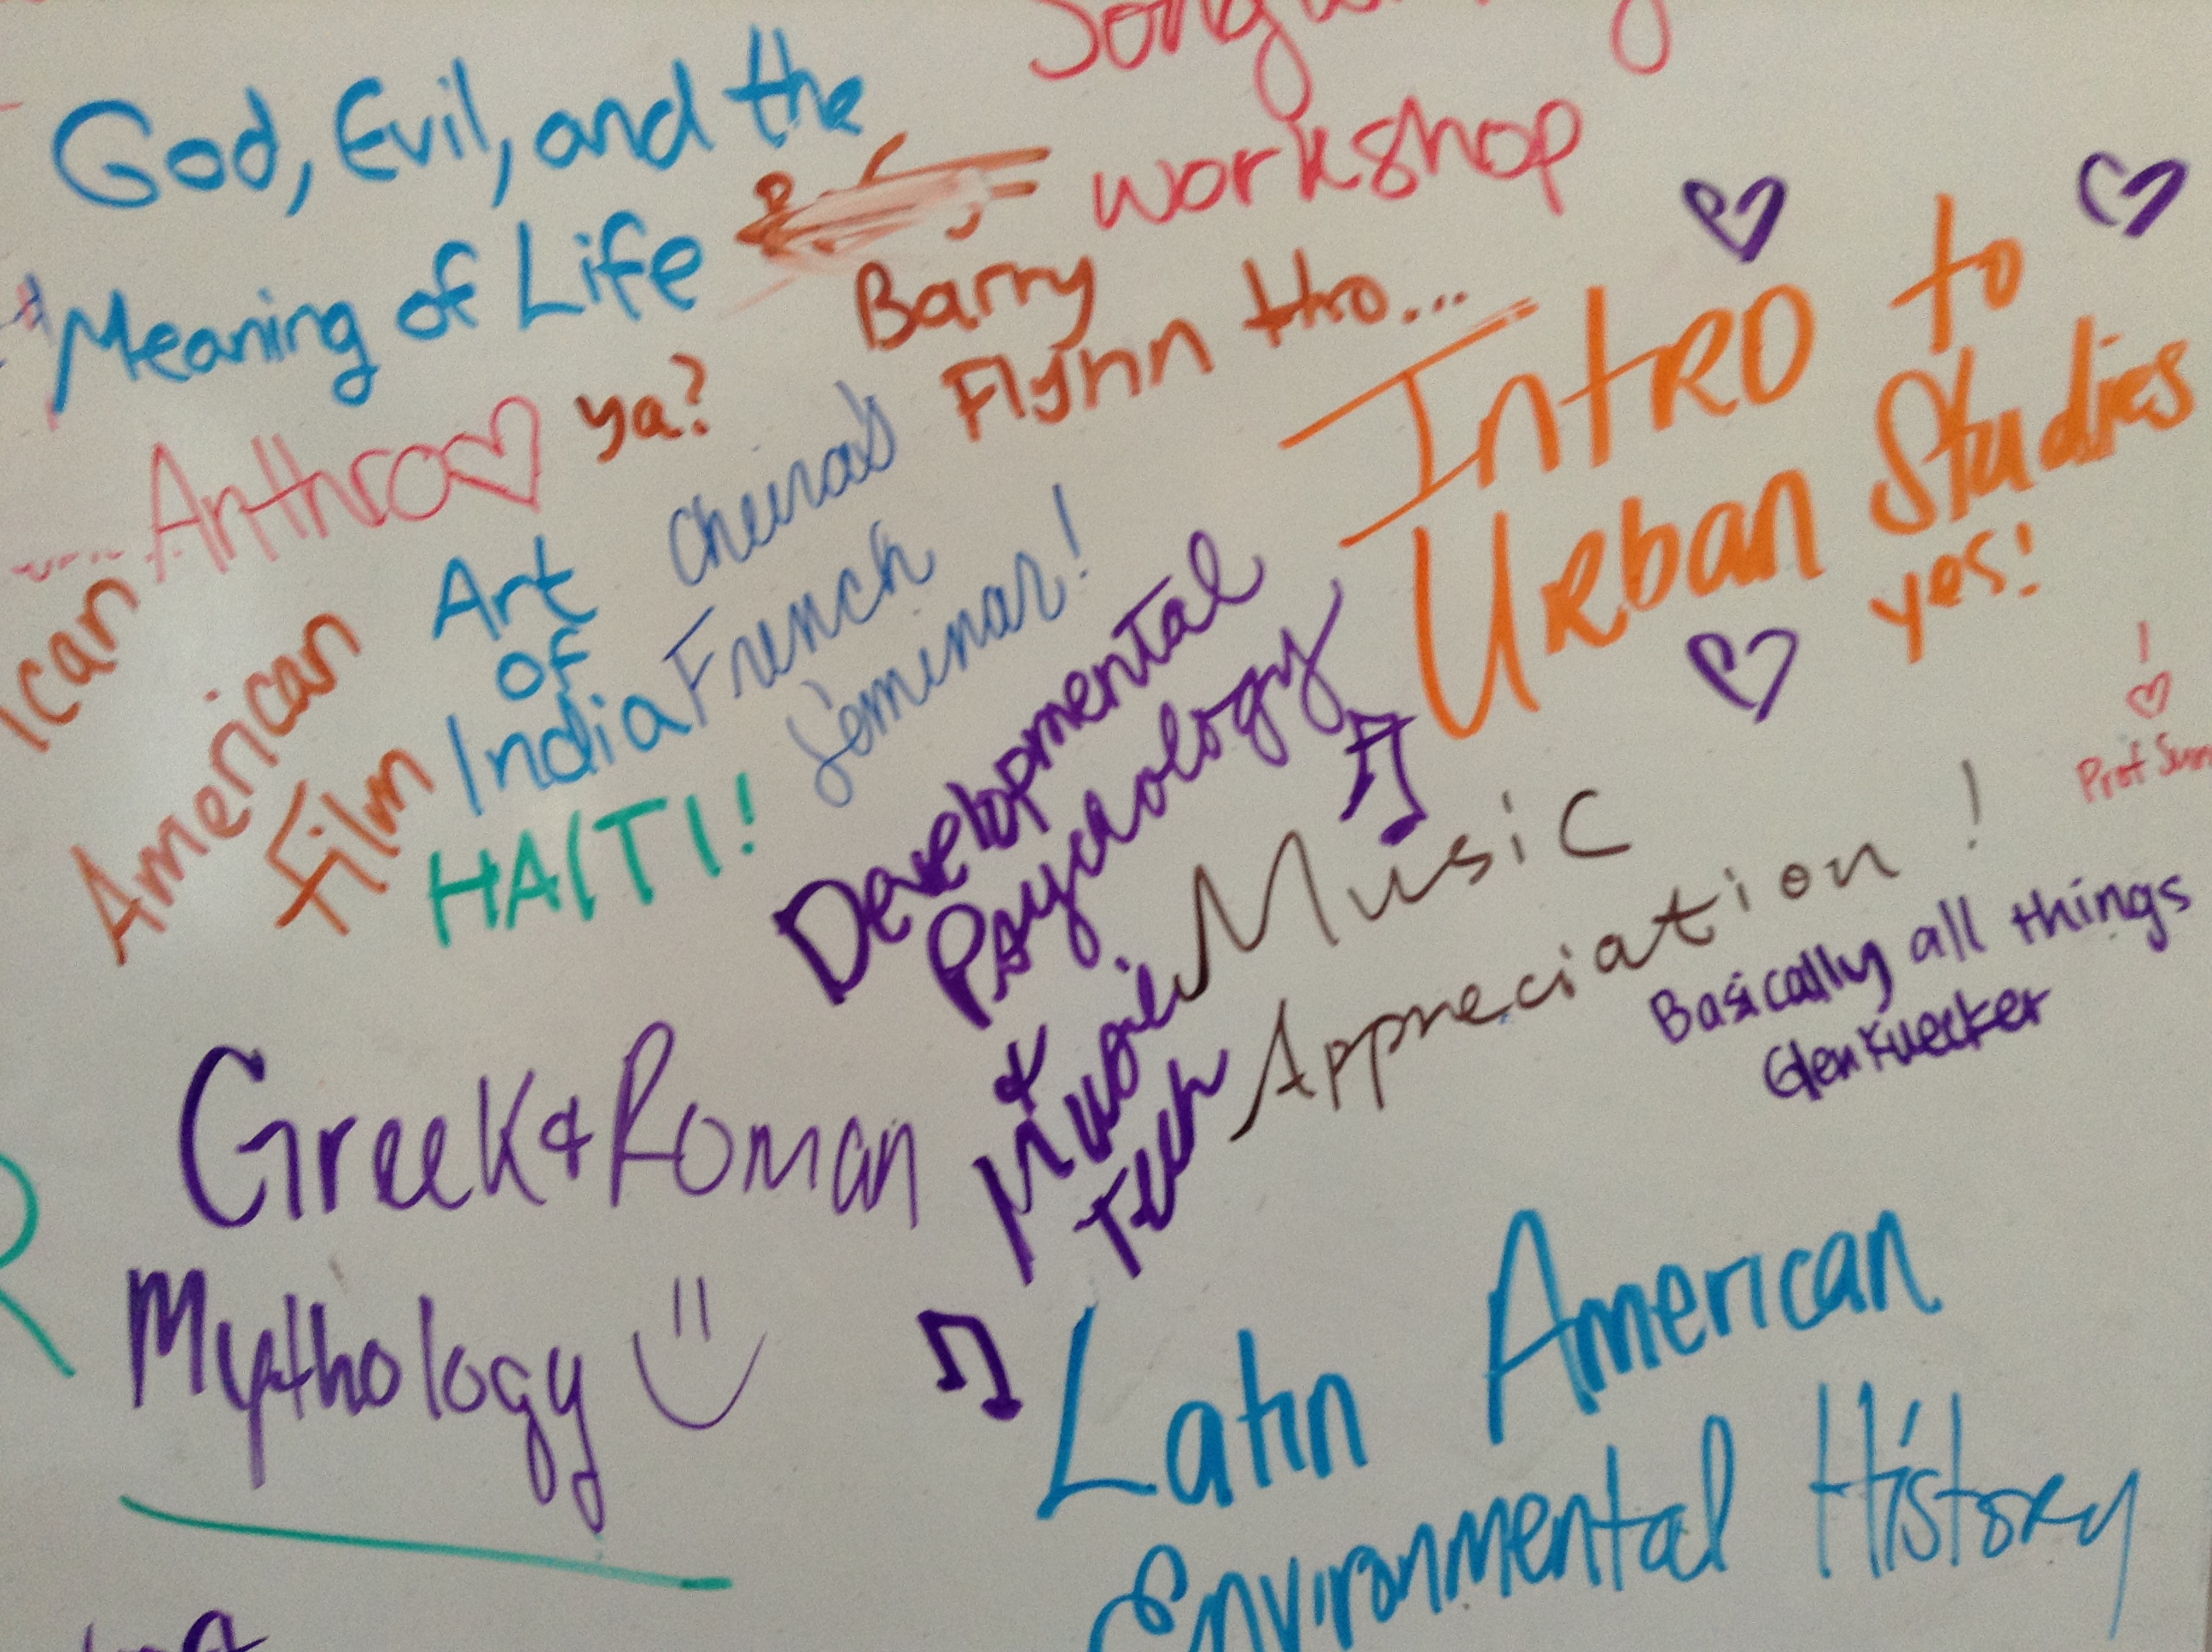 God, Evil, and the
Meaning of Life
workshop
Barry
Flynn
ya?
Anthro
American
Film
Art
of
India
French
Seminar!
HAITI!
Intro to
Urban Studies
yes!
Developmental
Psychology
& Music
Tech
Music
Appreciation!
Prof
Basically all things
Glen Kuecker
Greek & Roman
Mythology
Latin American
Environmental History